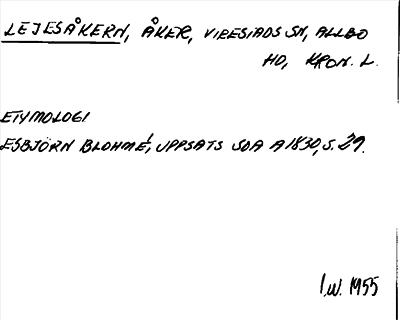 LEJESÅKERN, ÅKER, VIRESTADS SN, ALLBO
HD, KRON. L.
ETYMOLOGI
ESBJÖRN BLOHMÉ, UPPSATS SOA A 1830, S. 29.
I.W. 1955